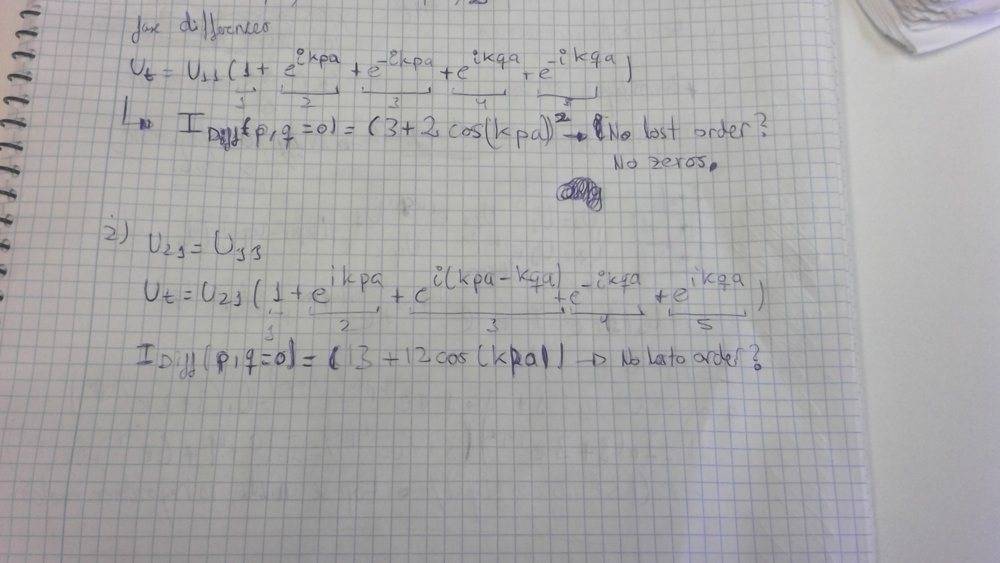 for differences
U_t = U_11 (1 + e^{ikpa} + e^{-ikpa} + e^{ikqa} + e^{-ikqa})
1 2 3 4 5
I_Diff(p,q=0) = (3+2 cos(kpa))^2 → No lost order?
No zeros.
2) U_21 = U_11
U_t = U_21 (1 + e^{ikpa} + e^{i(kpa-kqa)} + e^{-ikqa} + e^{ikqa})
1 2 3 4 5
I_Diff(p,q=0) = (13 + 12 cos(kpa)) → No lost order?